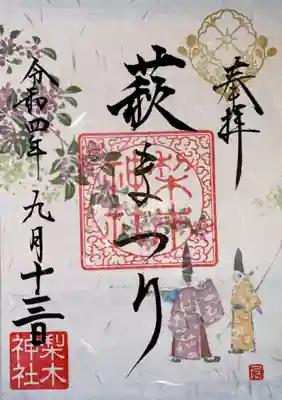 奉拝
萩まつり
梨木
神社
令和四年 九月十三日
梨木
神社